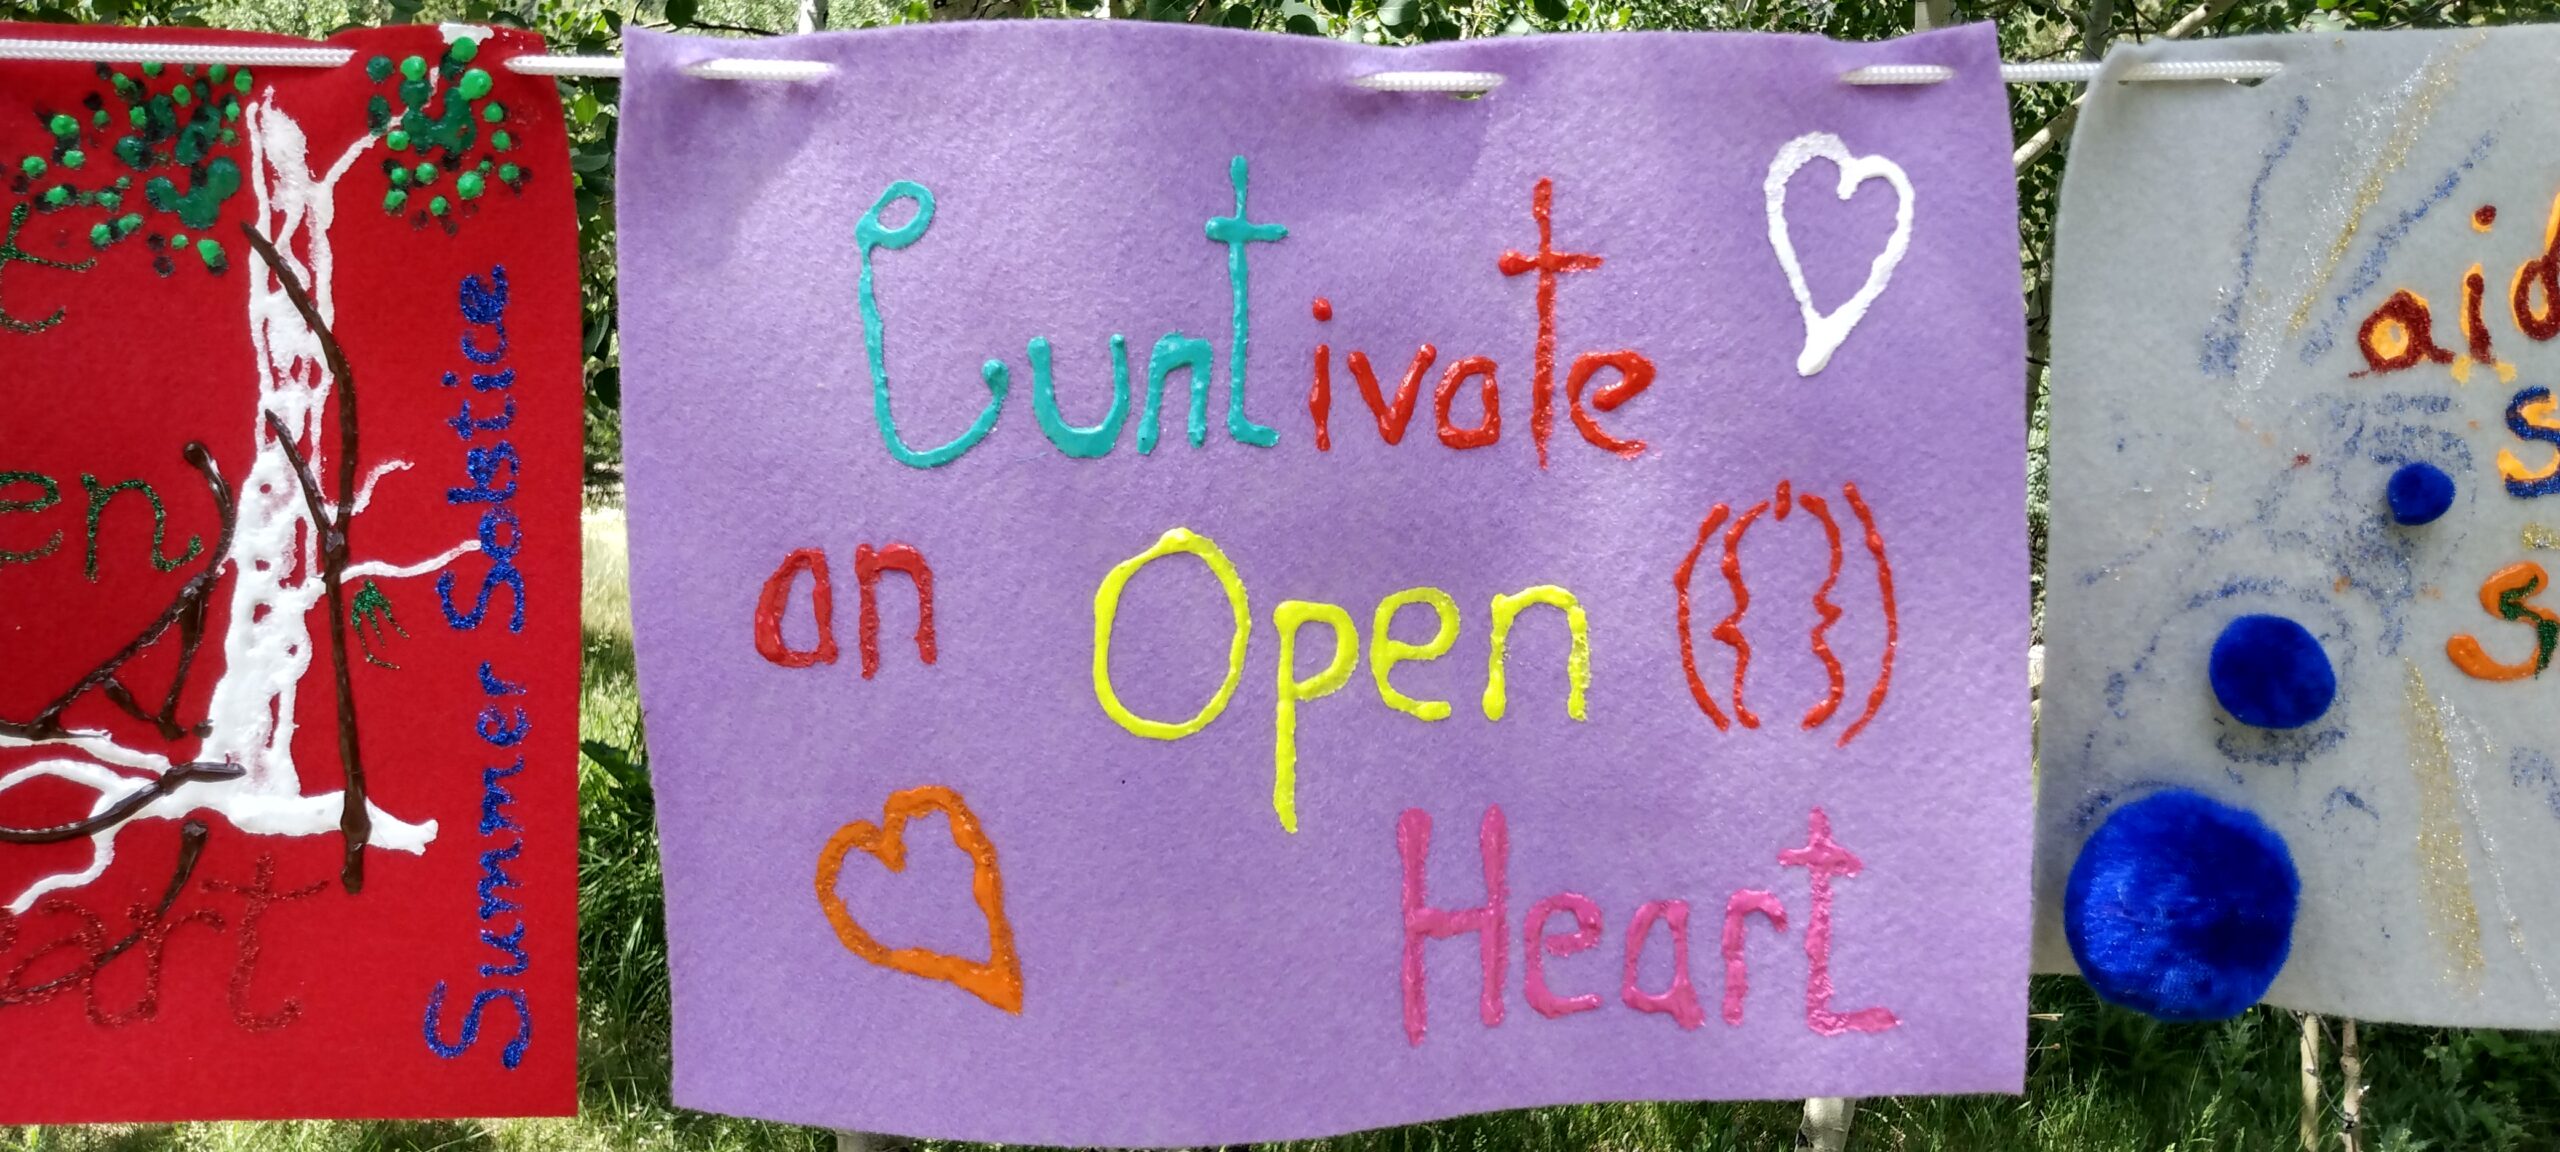 Cuntivate
an Open
Heart
en
Summer Solstice
art
aid